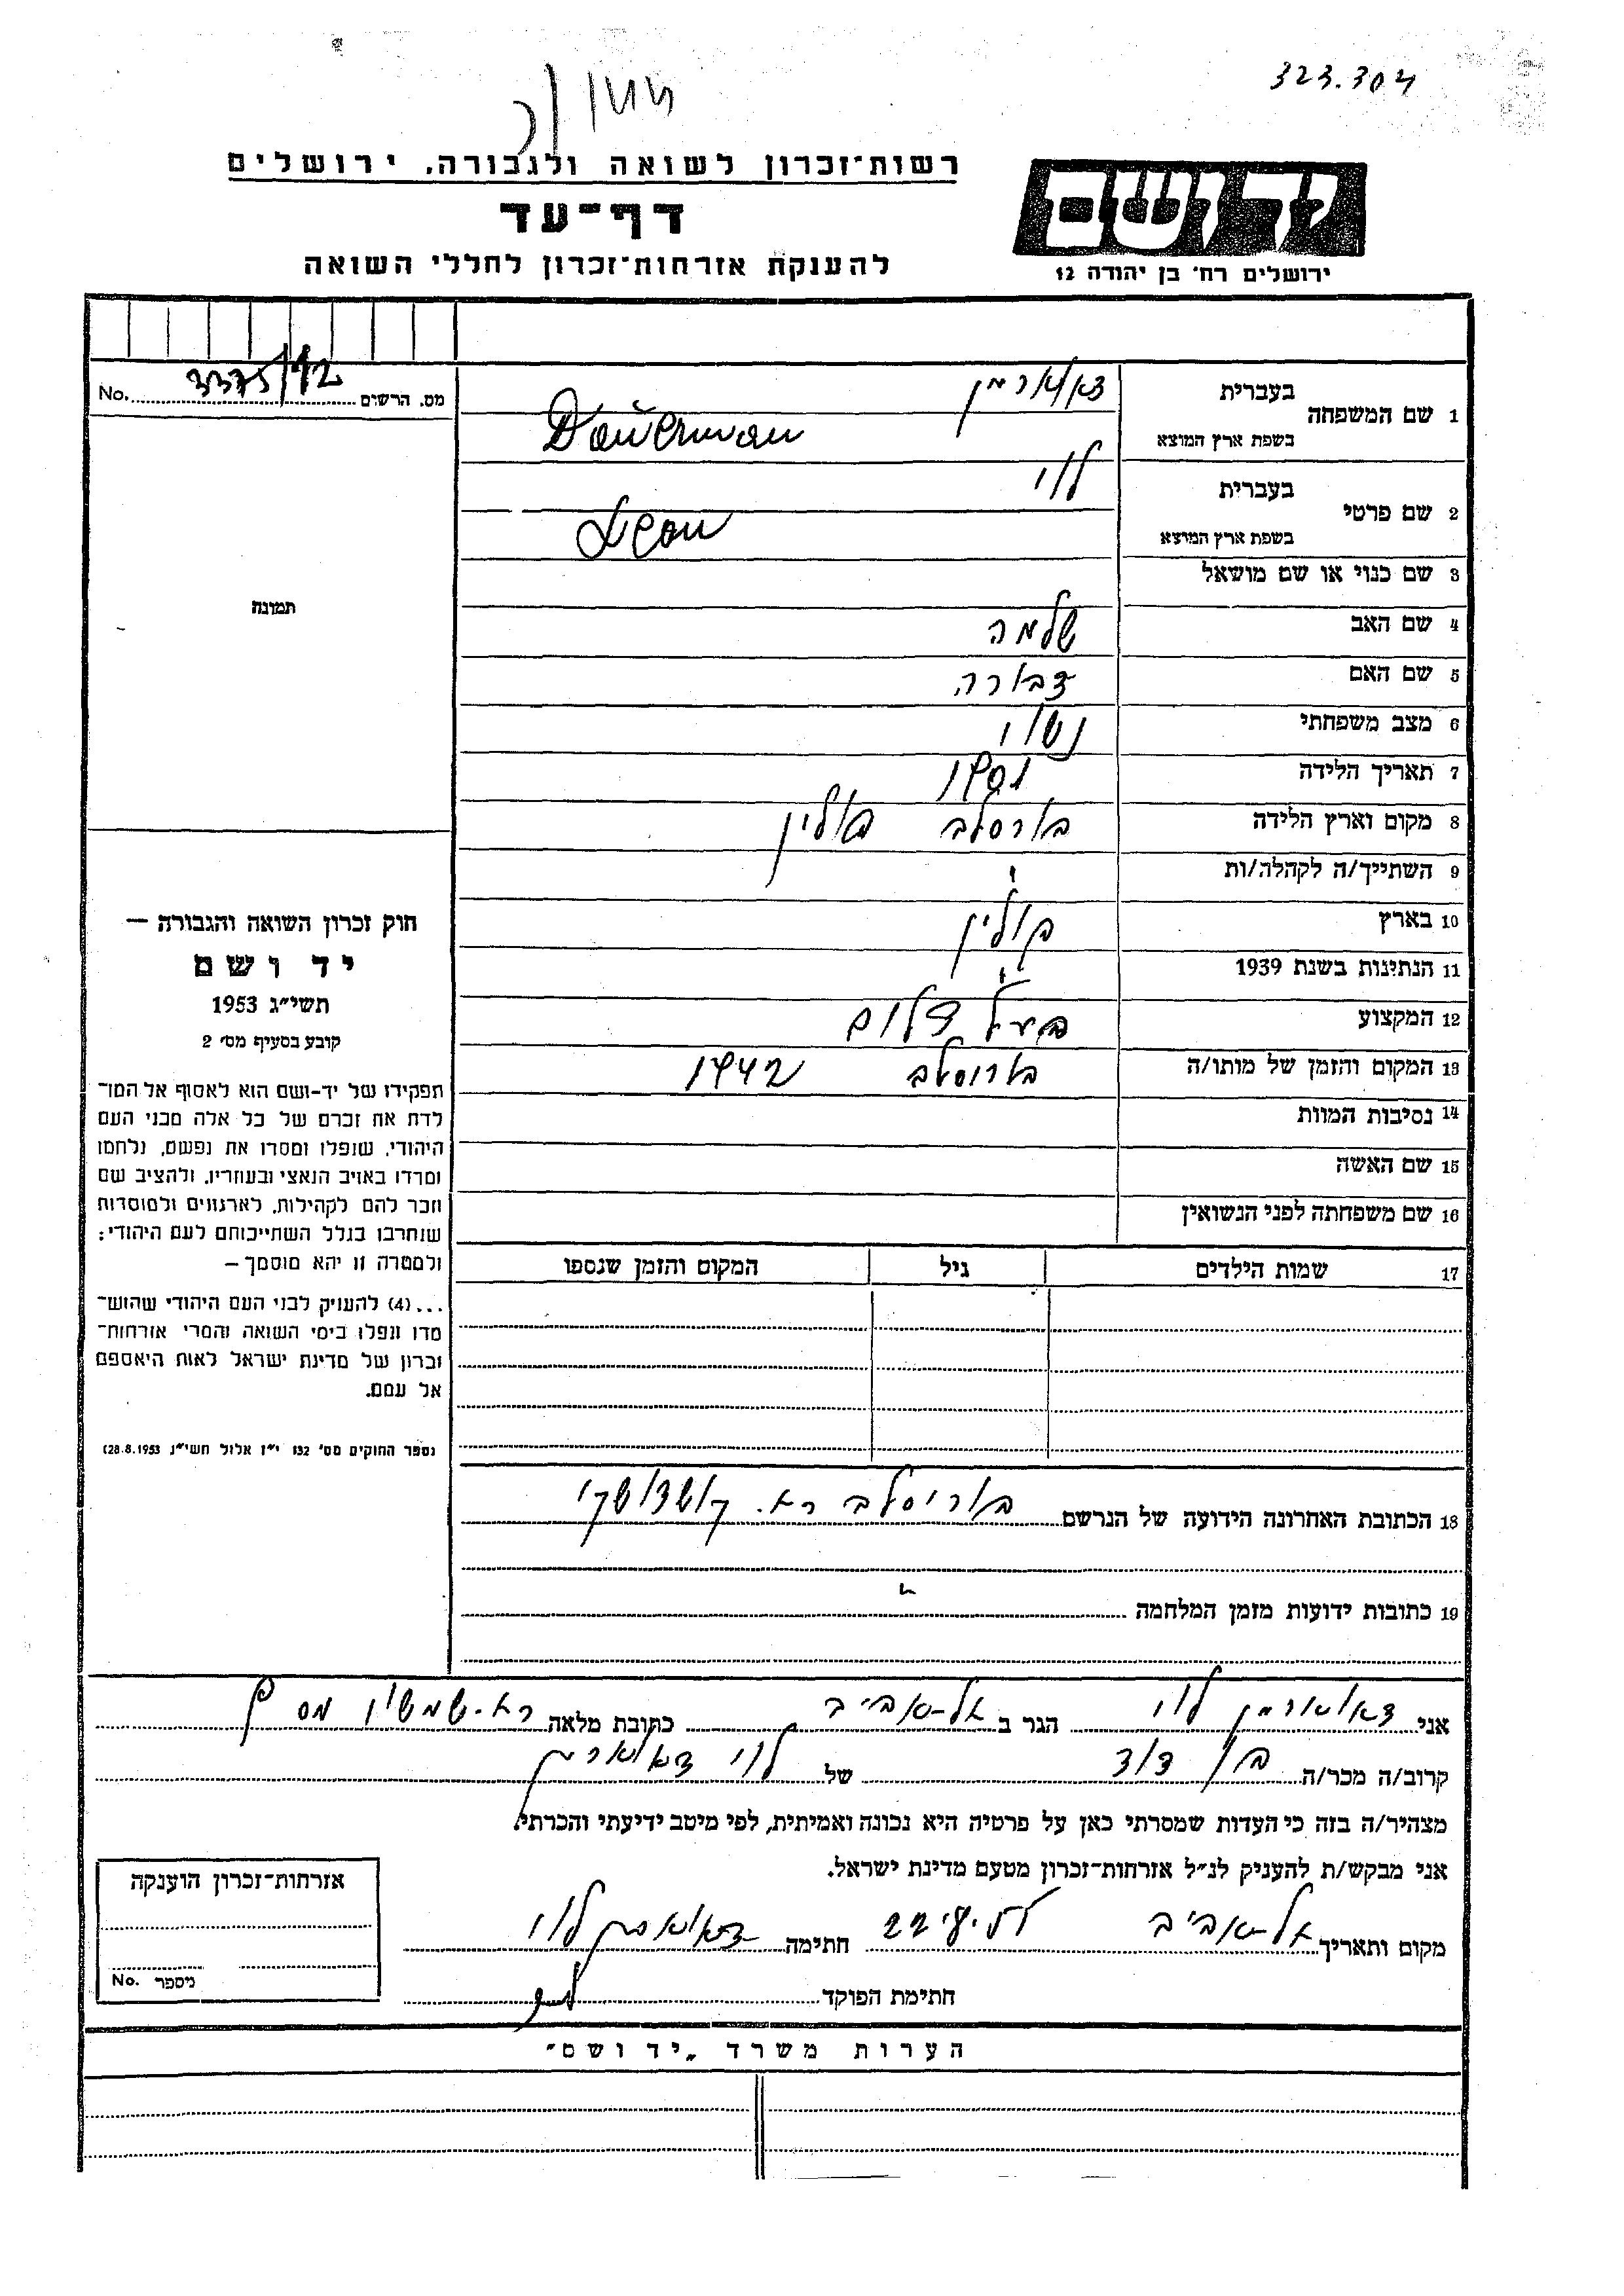 323.304
רשות־זכרון לשואה ולגבורה, ירושלים
דף־עד
להענקת אזרחות־זכרון לחללי השואה
יד ושם
ירושלים רח' בן יהודה 12
No. 3375/92 מס. הרשום
1 שם המשפחה
בעברית דאוארמן
בשפת ארץ המוצא Dauerman
2 שם פרטי
בעברית לוי
בשפת ארץ המוצא Leon
3 שם כנוי או שם מושאל
4 שם האב שלמה
5 שם האם דבורה
6 מצב משפחתי נשוי
7 תאריך הלידה 1901
8 מקום וארץ הלידה בורסלב פולין
9 השתייך/ה לקהלה/ות
10 בארץ פולין
11 הנתינות בשנת 1939
12 המקצוע
13 המקום והזמן של מותו/ה בורוסלב 1942
14 נסיבות המוות
15 שם האשה
16 שם משפחתה לפני הנשואין
17 שמות הילדים גיל המקום והזמן שנספו
18 הכתובת האחרונה הידועה של הנרשם בוריסלב רח.
19 כתובות ידועות מזמן המלחמה
תמונה
חוק זכרון השואה והגבורה —
יד ושם
תשי״ג 1953
קובע בסעיף מס' 2
תפקידו של יד-ושם הוא לאסוף אל המו־
לדת את זכרם של כל אלה מבני העם
היהודי, שנפלו ומסרו את נפשם, נלחמו
ומרדו באויב הנאצי ובעוזריו, ולהציב שם
וזכר להם לקהילות, לארגונים ולמוסדות
שנחרבו בגלל השתייכותם לעם היהודי;
ולמטרה זו יהא מוסמך —
...(4) להעניק לבני העם היהודי שהוש־
מדו ונפלו בימי השואה והמרי אזרחות־
זכרון של מדינת ישראל לאות היאספם
אל עמם.
(ספר החוקים מס' 132 י״ז אלול תשי״ג 28.8.1953)
אני דאוארמן לוי הגר ב תל-אביב כתובת מלאה רח. שמשון מס 9
קרוב/ה מכר/ה בן דוד של לוי דאוארמן
מצהיר/ה בזה כי העדות שמסרתי כאן על פרטיה היא נכונה ואמיתית, לפי מיטב ידיעתי והכרתי.
אני מבקש/ת להעניק לנ״ל אזרחות-זכרון מטעם מדינת ישראל.
מקום ותאריך תל-אביב חתימה דאוארמן לוי
חתימת הפוקד
אזרחות־זכרון הוענקה
No. מספר
הערות משרד „יד ושם״